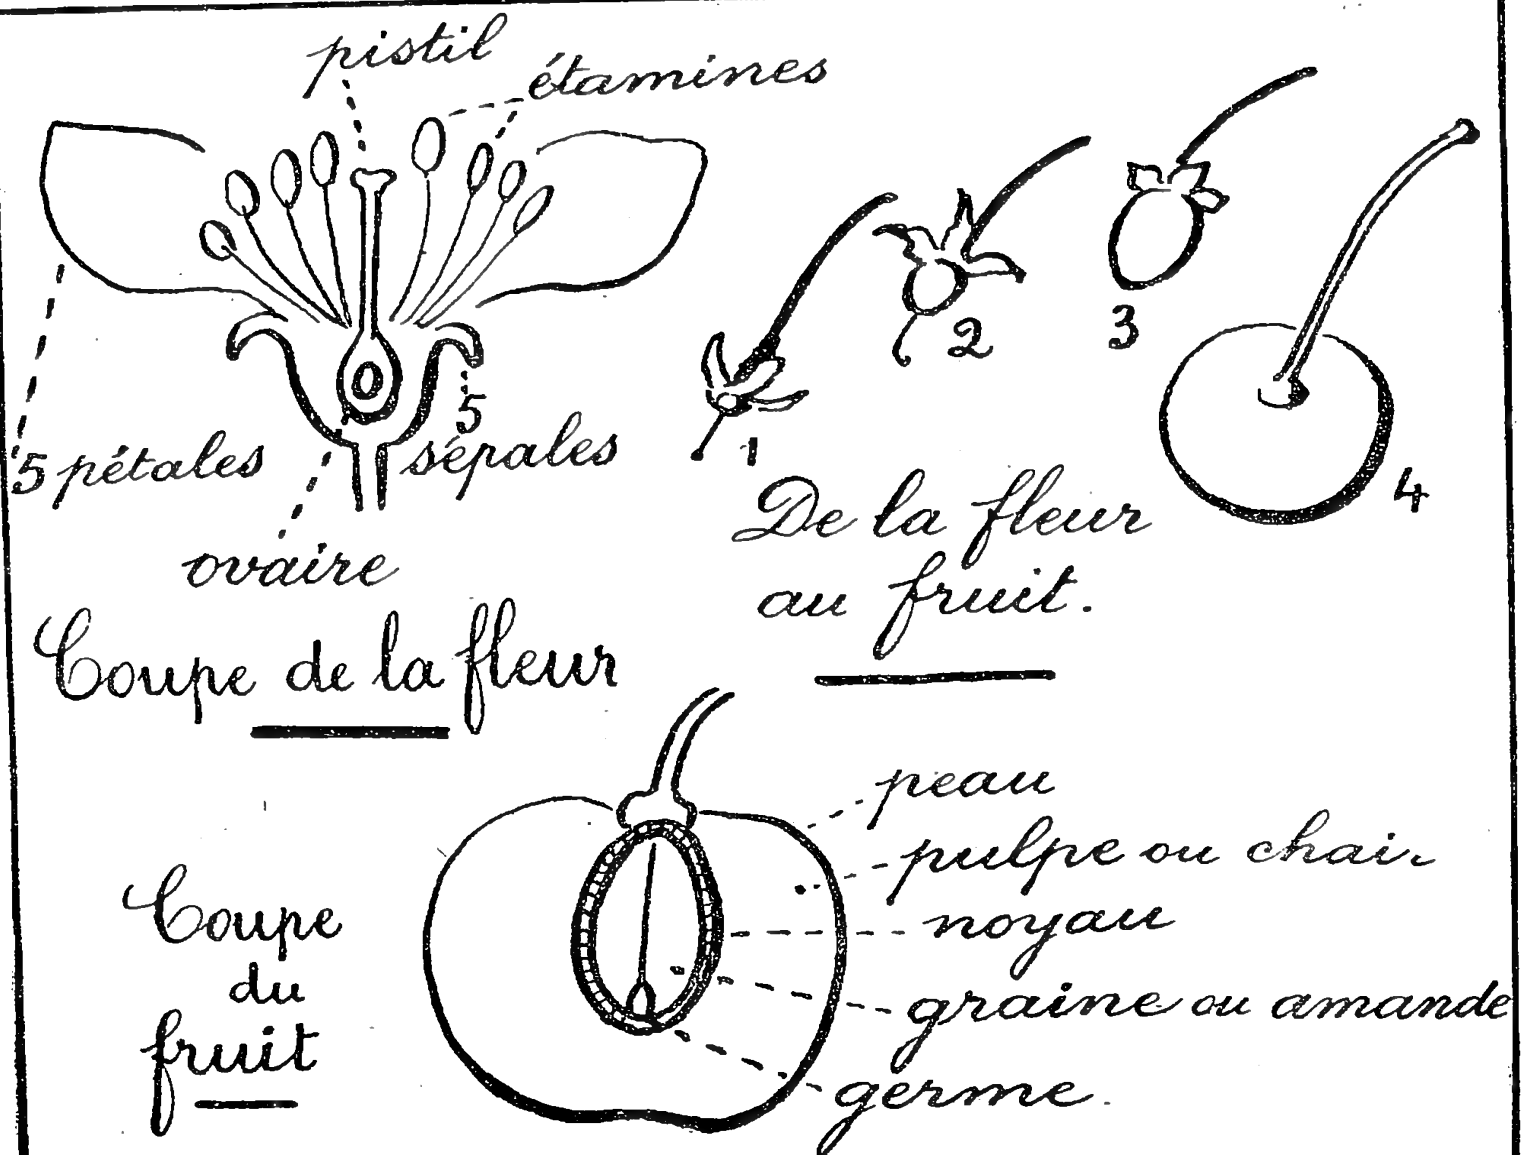 pistil
étamines
5 pétales
5
sépales
ovaire
Coupe de la fleur
1
2
3
4
De la fleur
au fruit.
Coupe
du
fruit
peau
pulpe ou chair
noyau
graine ou amande
germe.